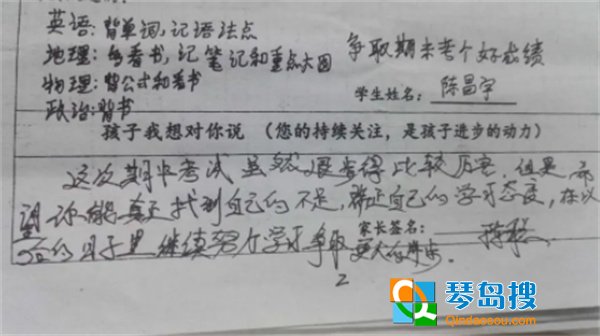 英语:背单词,记语法点
地理:多看书,记笔记和重点大图
物理:背公式和看书
政治:背书
争取期末考个好成绩
学生姓名:陈昌宇
孩子我想对你说 (您的持续关注,是孩子进步的动力)
这次期中考试虽然退步得比较厉害,但是希
望你能真正找到自己的不足,端正自己的学习态度,在以
后的日子里继续努力学习争取更大的进步.
家长签名:
2
琴岛搜
Qindaosou.com